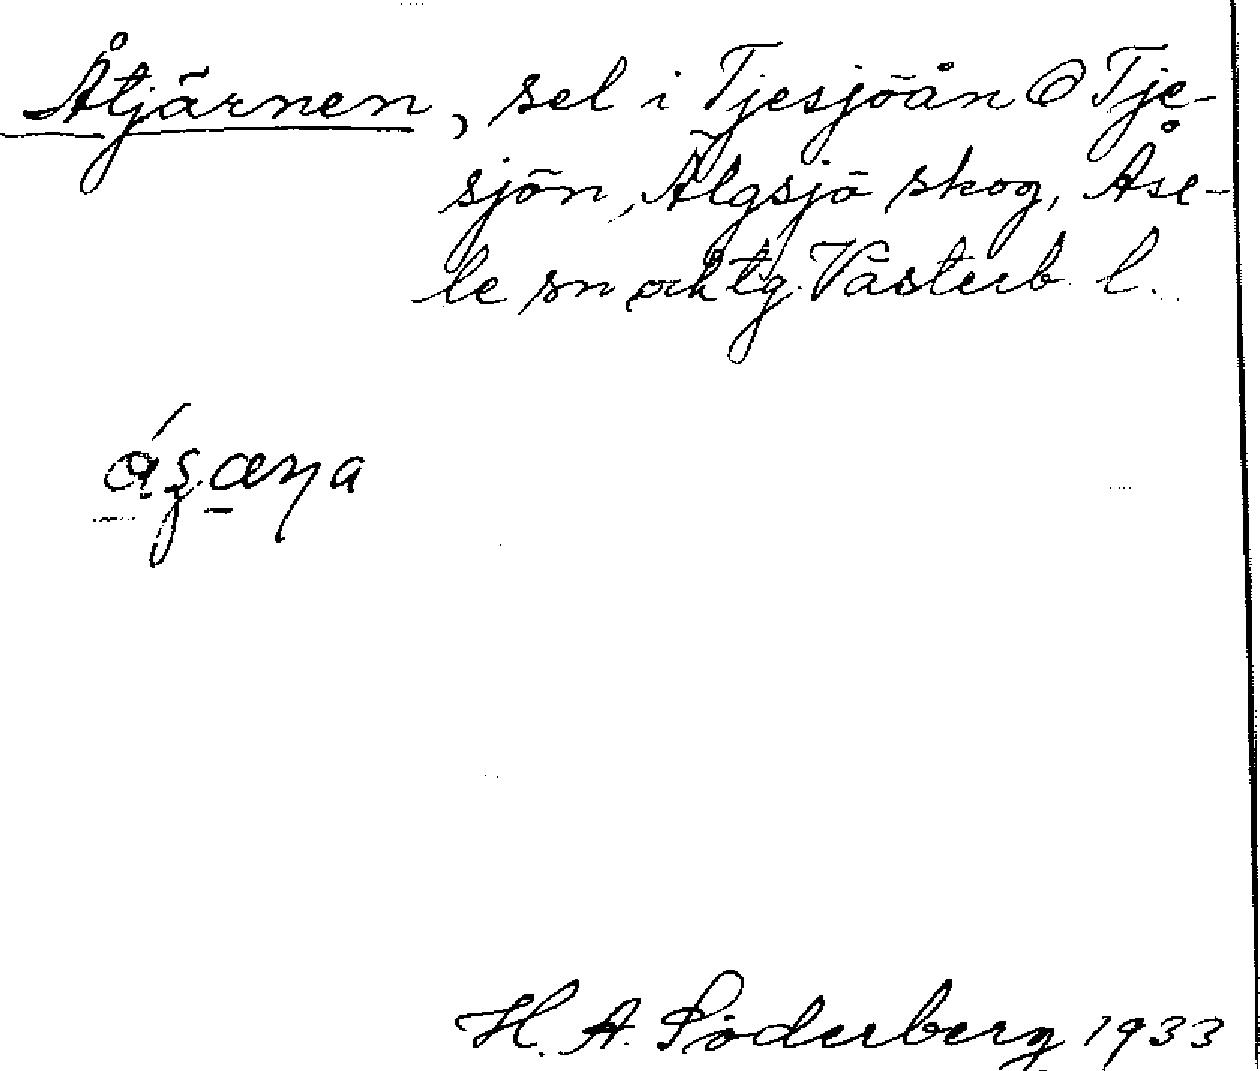 Åtjärnen, sel i Tjesjöån @ Tje-
sjön, Älgsjö skog, Åse-
le sn och tg. Västerb. l.
H. A. Söderberg 1933